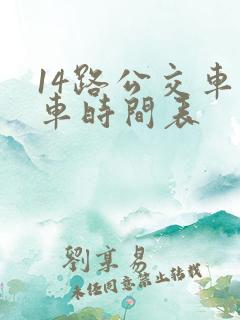 14路公交車
車時間表
劉享易
未经同意禁止转载